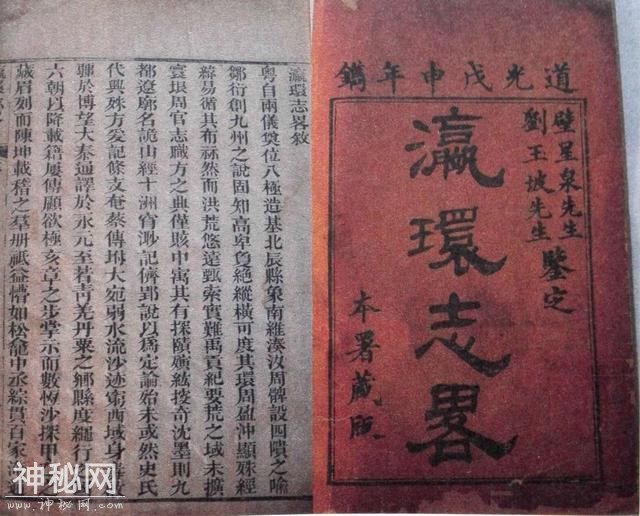 道光戊申年鐫
璧星泉先生
劉玉坡先生
鑒定
瀛環志畧
本署藏版
瀛環志畧敘
粵自兩儀奠位八極造基北辰縣象南維湊汝周髀設四隤之喻
鄒衍創九州之說固知高卑負絕縱橫可度其環周盈沖顯殊經
緯易循其布然而洪荒悠遠甄索實難禹貢紀要荒之域未擴
寰垠周官志職方之典僅賅中寓其有探賾紘掞奇沈墨則九
都遼廓名詭山經十洲窅渺記儕郢說以為定論始未或然史氏
代興殊方爰記條支奄蔡傳坿大宛弱水流沙迹窮西域身
驛於博望大秦通譯於永元至若靑羌丹粟之鄉縣度繩行
六朝以降載籍屢傳顧欲極亥章之步掌示而數恆沙探甲
藏眉列而陳坤載稽之羣冊祇益懵如松龕中丞綜貫百家
神秘网
www.神秘网.com